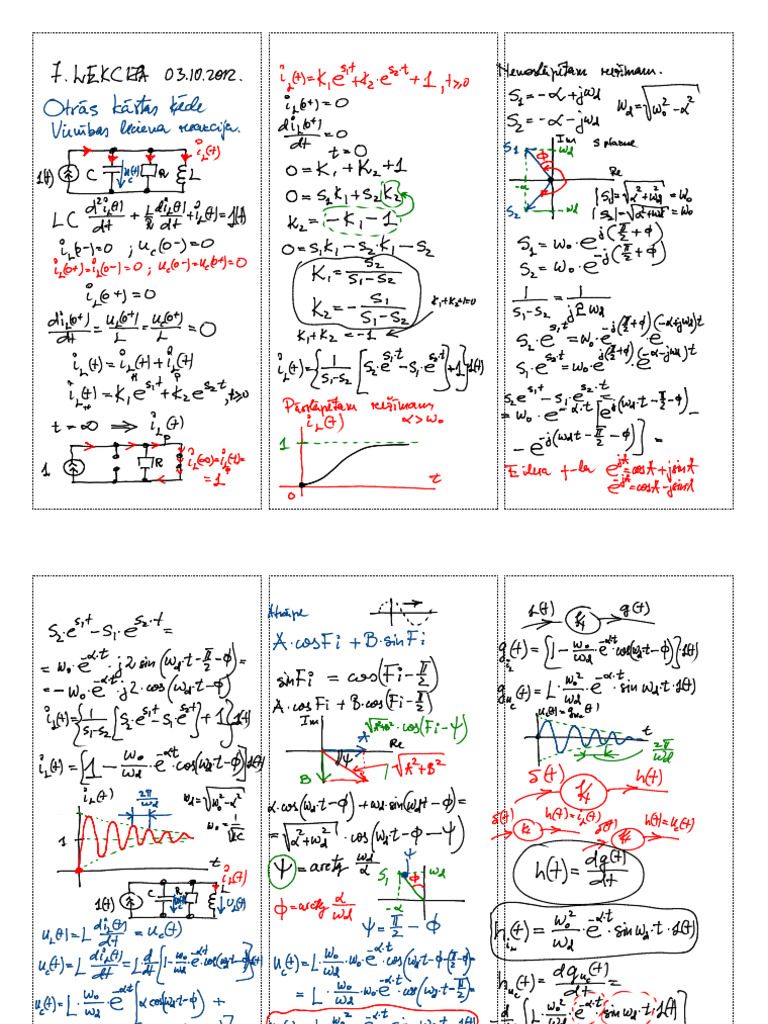 7. LEKCIJA 03.10.2012.
Otrās kārtas ķēde
Vienības lēciena reakcija.
i_L(t)
1(t) C u_C(t) R L
LC d²i_L(t)/dt + L/R di_L(t)/dt + i_L(t) = 1(t)
i_L(0-)=0 ; u_C(0-)=0
i_L(0+)=i_L(0-)=0 ; u_C(0-)=u_C(0+)=0
i_L(0+)=0
di_L(0+)/dt = u_L(0+)/L = u_C(0+)/L = 0
i_L(t) = i_L(t) + i_L(t)
H p
i_L(t) = K₁e^{s₁t} + K₂e^{s₂t}, t≥0
H
t = ∞ ⟹ i_L(t)
p
1 R i_L(∞)=i_L(t)=
=1
i_L(t)=K₁e^{s₁t}+K₂·e^{s₂·t}+1, t≥0
i_L(0+)=0
di_L(0+)/dt=0
t=0
0=K₁+K₂+1
0=s₁K₁+s₂K₂
K₂=-K₁-1
0=s₁K₁-s₂·K₁-s₂
K₁=s₂/(s₁-s₂)
K₂=-s₁/(s₁-s₂)
K₁+K₂+1=0
K₁+K₂=-1
i_L(t)={1/(s₁-s₂)[s₂·e^{s₁·t}-s₁·e^{s₂·t}]+1}1(t)
Pārslāpētam režīmam
i_L(t) α>ω₀
1
t
0
Nenoslāpētam režīmam.
s₁=-α+jω_d
s₂=-α-jω_d
ω_d=√(ω₀²-α²)
s₁ Im ω_d s plakne
φ
-α Re
s₂ -ω_d
|s₁|=√(α²+ω_d²)=ω₀
|s₂|=√(α²+ω_d²)=ω₀
s₁=ω₀·e^{j(π/2+φ)}
s₂=ω₀·e^{-j(π/2+φ)}
1/(s₁-s₂)=1/(j2ω_d)
s₂·e^{s₁t}=ω₀·e^{-j(π/2+φ)}·e^{(-α+jω_d)t}
s₁·e^{s₂t}=ω₀·e^{j(π/2+φ)}·e^{(-α-jω_d)t}
s₂e^{s₁t}-s₁·e^{s₂·t}=
=ω₀·e^{-α·t}[e^{j(ω_dt-π/2-φ)}-
-e^{-j(ω_dt-π/2-φ)}]=
Eilera f-la e^{jA}=cosA+jsinA
e^{-jA}=cosA-jsinA
s₂·e^{s₁t}-s₁·e^{s₂·t}=
=ω₀·e^{-α·t}·j2sin(ω_d·t-π/2-φ)=
=-ω₀·e^{-α·t}·j2·cos(ω_d·t-φ)
i_L(t)={1/(s₁-s₂)[s₂·e^{s₁t}-s₁e^{s₂t}]+1}1(t)
i_L(t)=[1-ω₀/ω_d·e^{-αt}·cos(ω_dt-φ)]1(t)
i_L(t) 2π/ω_d ω_d=√(ω₀²-α²)
ω₀=1/√LC
1
t
1(t) C R L i_L(t) u_L(t)
u_L(t)=L di_L(t)/dt=u_C(t)
u_C(t)=L di_L(t)/dt=L d/dt[1-ω₀/ω_d·e^{-αt}cos(ω_dt-φ)]1(t)
u_C(t)=L·ω₀/ω_d·e^{-αt}[αcos(ω_d·t-φ)+
Atkāpe
A·cosFi+B·sinFi
sinFi=cos(Fi-π/2)
A·cosFi+B·cos(Fi-π/2)
Im √(A²+B²)·cos(Fi-ψ)
A Re
ψ
B √(A²+B²)
α·cos(ω_d·t-φ)+ω_d·sin(ω_dt-φ)=
=√(α²+ω_d²)·cos(ω_d·t-φ-ψ)
ψ=arctg ω_d/α
ψ
s₁ φ ω_d
-α
φ=arctg α/ω_d
ψ=π/2-φ
u_C(t)=L·ω₀/ω_d·ω₀·e^{-α·t}·cos(ω_d·t-φ-(π/2-φ))=
=L·ω₀²/ω_d·e^{-α·t}·cos(ω_d·t-π/2)=
1(t) g(t)
g_{i_L}(t)=[1-ω₀/ω_d·e^{-αt}·cos(ω_d·t-φ)]1(t)
g_{u_C}(t)=L·ω₀²/ω_d·e^{-α·t}·sinω_d·t·1(t)
u_C(t)=g_{u_C}(t)
t
2π/ω_d
δ(t) h(t)
δ(t) h(t)=i_L(t) δ(t) h(t)=u_C(t)
h(t)=dg(t)/dt
h_{i_L}(t)=ω₀²/ω_d·e^{-α·t}·sinω_d·t·1(t)
h_{u_C}(t)=dg_{u_C}(t)/dt=
=d/dt[L·ω₀²/ω_d·e^{-α·t}·sinω_d·t·1(t)]